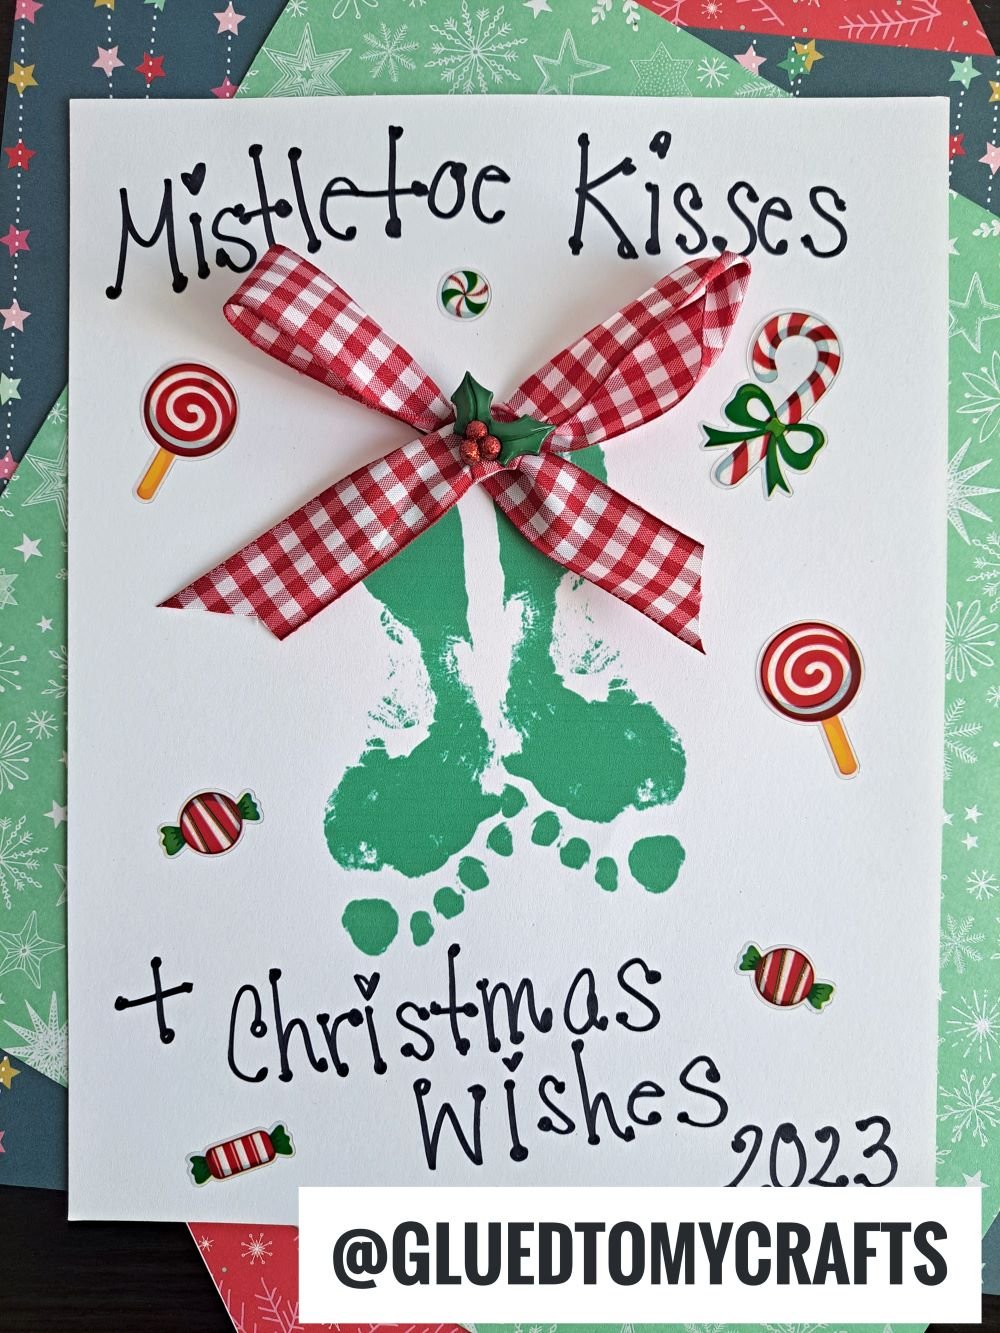 Mistletoe Kisses
+ Christmas
Wishes
2023
@GLUEDTOMYCRAFTS